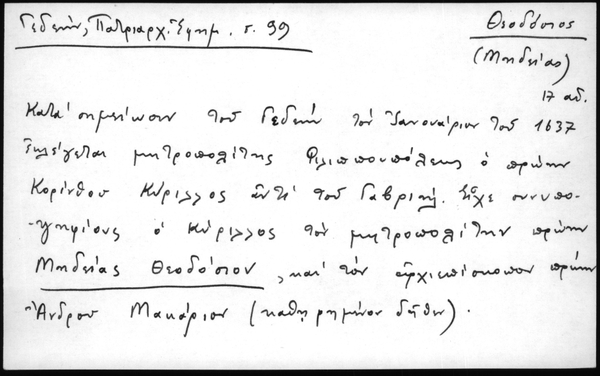 Γεδεών, Πατριαρχ. Ἐφημ. σ. 99
Θεοδόσιος
(Μηδείας)
17 αἰ.
Κατά σημείωσιν τοῦ Γεδεών τόν Ἰανουάριον τοῦ 1637
ἐκλέγεται μητροπολίτης Φιλιππουπόλεως ὁ πρώην
Κορίνθου Κύριλλος ἀντί τοῦ Γαβριήλ. Εἶχε συνυπο-
-ψηφίους ὁ Κύριλλος τόν μητροπολίτην πρώην
Μηδείας Θεοδόσιον, καί τόν ἀρχιεπίσκοπον πρώην
Ἄνδρου Μακάριον (καθῃρημένον δῆθεν).